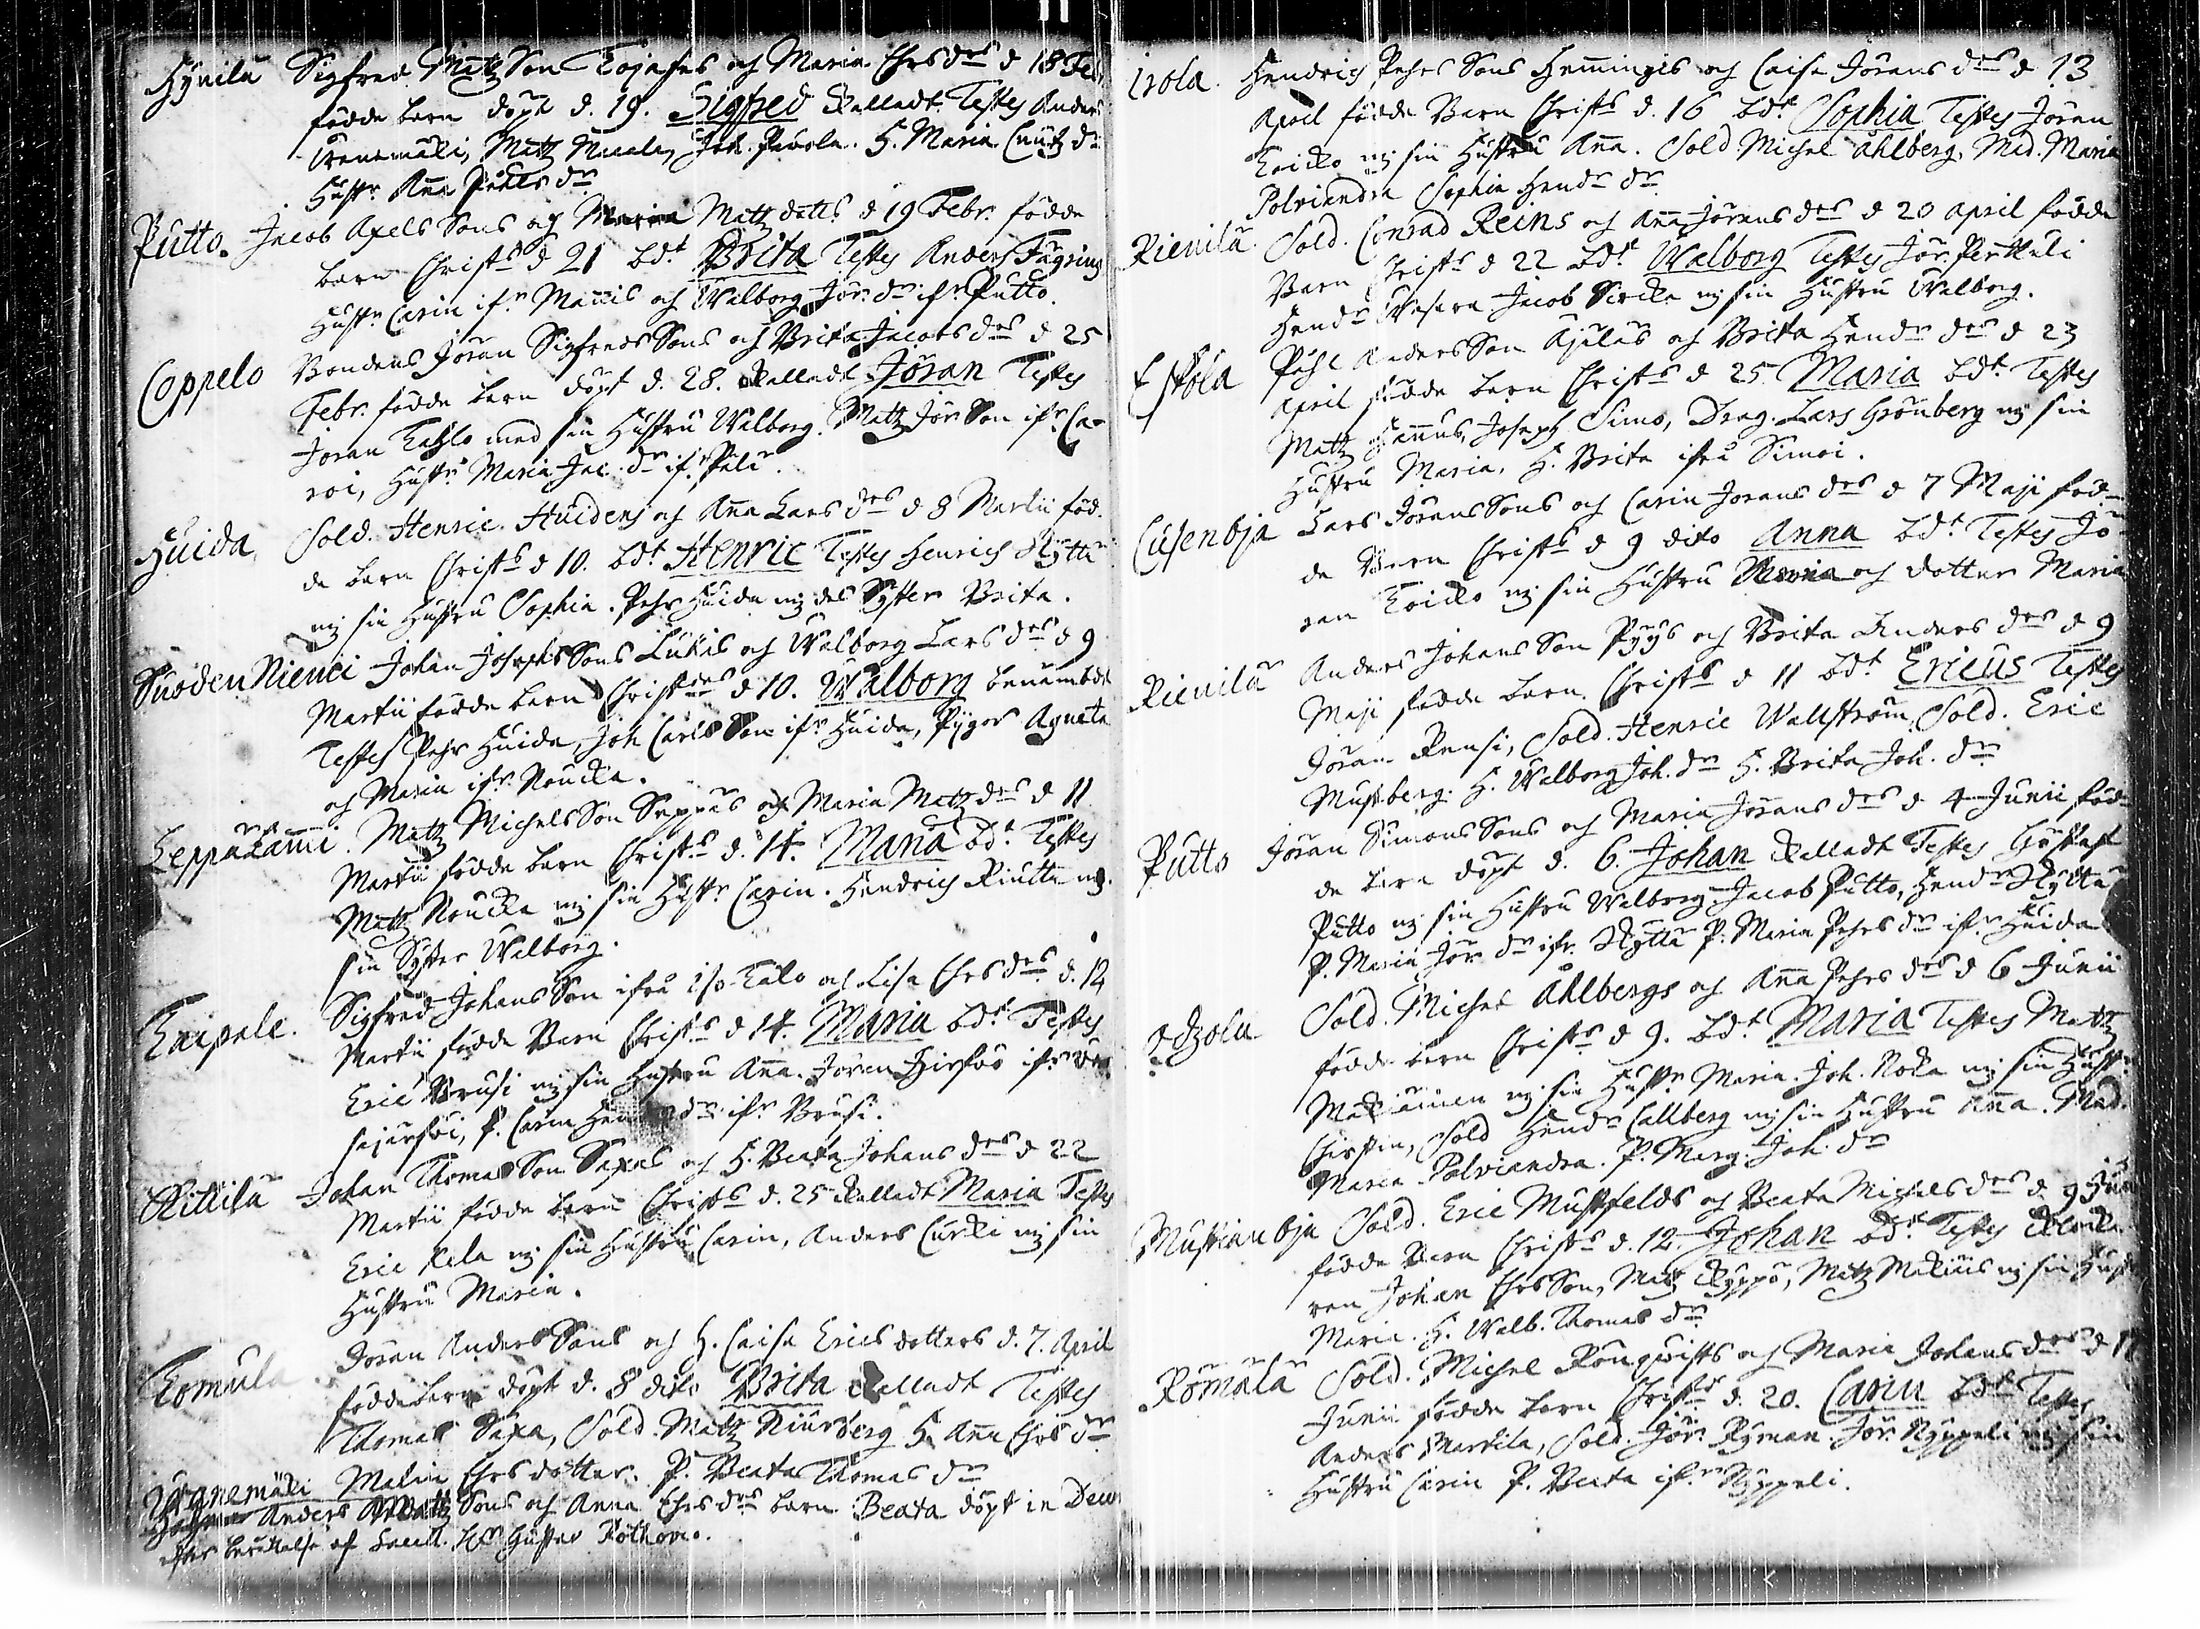 Hynilä Sigfred Matz Son Kojasas och Maria Ehrs drs d 18 Feb.
födde barn döpt d. 19. Sigfred kalladt Testes Anders
Uranemäki, Matz Joh. Pavola. H. Maria Cnutz dr
Hustr. Anna dr
Putto. Jacob Axels Sons och Maria Matz dotts d 19 Febr. födde
barn Christs d 21 bdt Brita Testes Anders Fägring
Hustr. Carin ifr. Mattis och Walborg Jör. dr ifr. Putto.
Coppelo Bondens Jöran Sigfreds Sons och Brita Jacobs drs d 25
Febr. födde barn döpt d. 28. kalladt Jöran Testes
Jöran Kahlo med sin Hustru Walborg. Matz Jör Son ifr. Ca-
roi, Hustr. Maria Jac. dr ifr.
Huida. Sold. Henric. Huidens och Anna Lars drs d 8 Martii föd-
de barn Christs d 10. bdt Henric Testes Henrich Kyttä
mz sin Hustru Sophia. Pehr Huida mz des Syster Brita.
Suoden Niemi Johan Josephs Sons Lukis och Walborg Lars drs d 9
Martii födde barn Christnes d 10. Walborg benämbdt
Testes Pehr Huida, Joh Carls Son ifr Huida, Pygor Agneta
och Maria ifr. Noucka.
Leppälammi. Matz Michels Son Seppäs och Maria Matz drs d 11
Martii födde barn Christs d. 14. Maria bdt. Testes
Matz Noucka mz sin Hustr. Carin. Hendrich Riutta mz
sin Syster Walborg.
Kaipale. Sigfred Johans Son ifrån Iso-Kalo och Lisa Ehrs drs d. 12
Martii födde Barn Christs d 14. Maria bdt Testes
Eric Brusi mz sin Hustru Anna. Jöran Hirfvo ifr
P. Carin dr ifr Brusi.
Kittilä Johan Thomas Son Saxas och H. Beata Johans drs d 22
Martii födde barn Christs d. 25 kalladt Maria Testes
Eric Kela mz sin Hustru Carin, Anders Curki mz sin
Hustru Maria.
Komula Jöran Anders Sons och H. Caisa Erics dotters d. 7. April
födde barn döpt d. 8 dito Brita kalladt Testes
Thomas Saxa, Sold. Matz Niurberg H. Anna Ehrs dr
Malin Ehrs dotter. P. Beata Thomas dr
Uranemäki Anders Matz Sons och Anna Ehrs drs barn Beata döpt in Decem
efter berättelse af Gustav Rothovi.
Irola. Hendrich Pehrs Sons Hemmingis och Caisa Jörans drs d 13
April födde Barn Christs d. 16 bdt Sophia Testes Jöran
Kaicko mz sin Hustru Anna. Sold. Michel Åhlberg, Mad. Maria
Polviandra Sophia Hendr dr
Rienilä. Sold. Conrad Reins och Anna Jörans drs d 20 April födde
Barn Christs d 22 bdt Walborg Testes Jör. Perttuli
Hendr Jacob Sircka mz sin Hustru Walborg.
Eskola Pehr Anders Son Ajilas och Brita Hendr drs d 23
April födde barn Christs d 25. Maria bdt. Testes
Matz Hannus, Joseph Simo, Drag. Lars Grönberg mz sin
Hustru Maria. H. Brita ifrån Simoi.
Cusenbja Lars Jörans Sons och Carin Jorans drs d 7 Maji föd-
de Barn Christs d 9 dito Anna bdt. Testes Jö-
ran Kaicko mz sin Hustru Maria och dotter Maria
Rienilä Anders Johans Son Pyys och Brita Anders drs d 9
Maji födde barn Christs d 11 bdt Ericus Testes
Jöran Rensi, Sold. Henric Wallström, Sold. Eric
Mustberg. H. Walborg Joh. dr H. Brita Joh. dr
Putto Jöran Simons Sons och Maria Jörans drs d. 4 Junii föd-
de barn döpt d. 6. Johan kalladt Testes Gustaf
Putto mz sin Hustru Walborg Jacob Putto, Hendr Kyttä
P. Maria Jör. dr ifr. Kyttä P. Maria Pehrs dr ifr. Huida
Sold. Michel Åhlbergs och Anna Pehrs drs d 6 Junii
födde barn Christs d 9. bdt. Maria Testes Matz
Mäkiäinen mz sin Hustr. Maria. Joh. Rocka mz sin Hustr.
Christin, Sold Hendr Callberg mz sin Hustru Anna. Mad.
Maria Polviandra. P. Marg. Joh. dr
Mustian bja Sold. Eric Mustfelds och Beata Michels drs d. 9 Junii
födde Barn Christs d. 12. Johan bdt. Testes Klocka-
ren Johan Ehrs Son, Matz Kyppö, Matz Mäkiäis mz sin Hust
Maria. H. Walb. Thomas dr
Römälä Sold. Michel Rönqvists och Maria Johans drs d
Junii födde barn Christs d. 20. Carin bdt Testes
Anders Markila, Sold. Jör. Ryman. Jör. Nyppeli mz sin
Hustru Carin P. Beata ifr. Nyppeli.